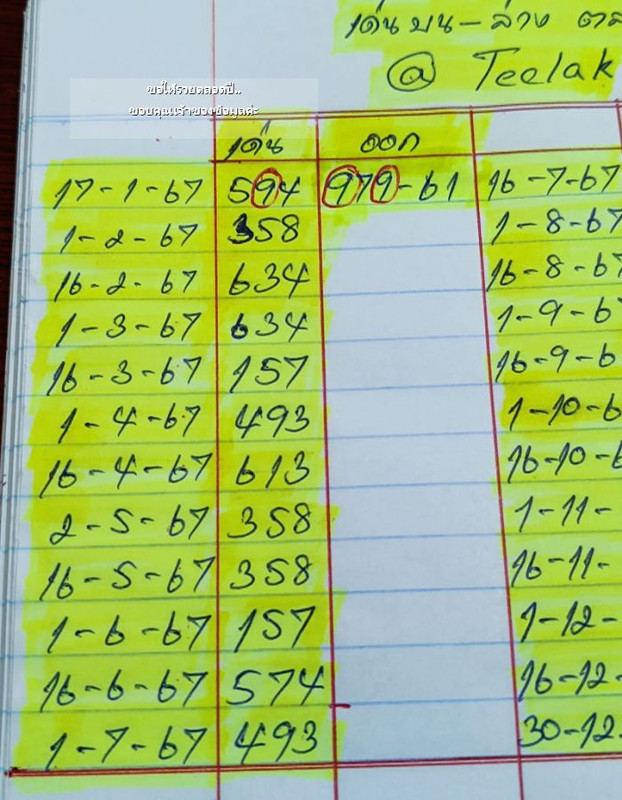 เด่น บน - ล่าง ตล
@ Teelak
ขอให้รวยตลอดปี..
ขอบคุณเจ้าของข้อมูลค่ะ
เด่น ออก
17-1-67 594 979-61 16-7-67
1-2-67 358 1-8-67
16-2-67 634 16-8-67
1-3-67 634 1-9-6
16-3-67 157 16-9-6
1-4-67 493 1-10-6
16-4-67 613 16-10-6
2-5-67 358 1-11-
16-5-67 358 16-11-
1-6-67 157 1-12-
16-6-67 574 16-12-
1-7-67 493 30-12-